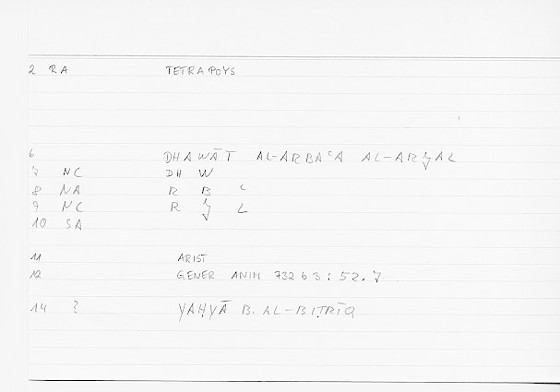 2 RA TETRAPOYS
6 DHAWĀT AL-ARBAʿA AL-ARǦAL
7 NC DH W
8 NA R B ʿ
9 NC R Ǧ L
10 SA
11 ARIST
12 GENER ANIM 732 b 3 : 52.7
14 ? YAḤYĀ B. AL-BIṬRĪQ